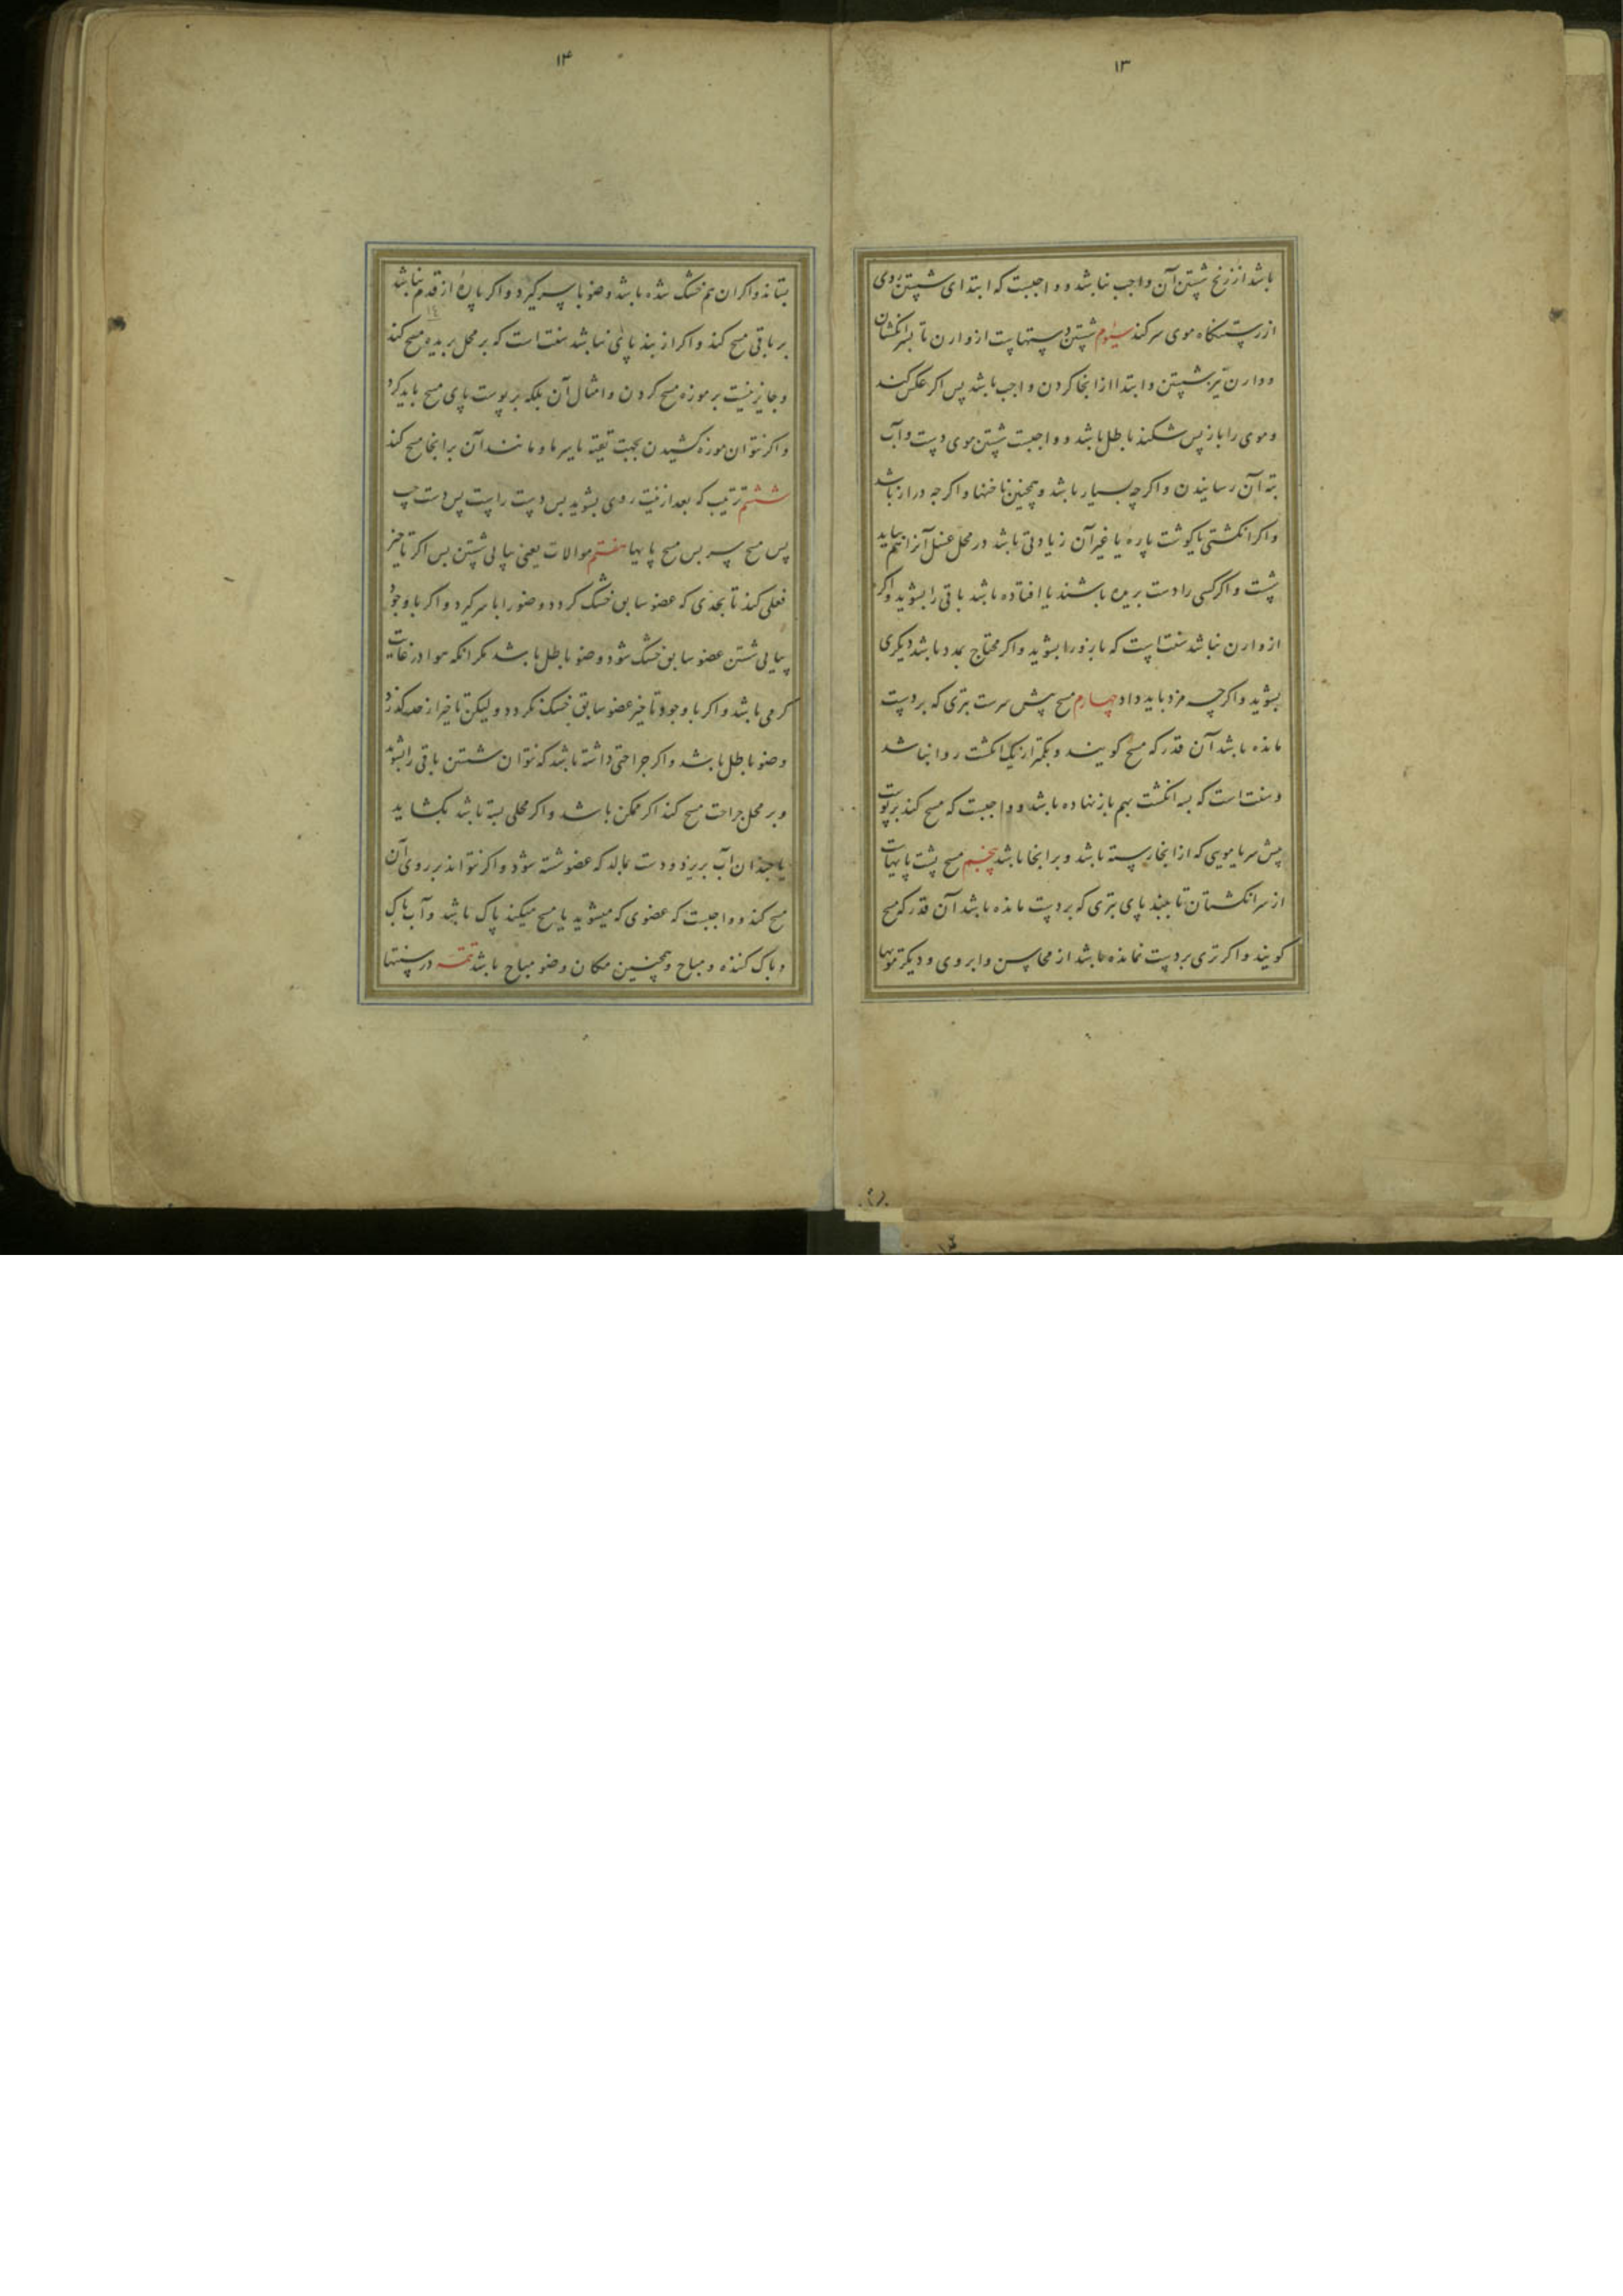 ۱۳
باشد از زنخ شستن آن واجب نباشد و واجبست که ابتدای شستن روی
از رستنگاه موی سر کند سیوم شستن دستهاست از وارن تا بسر انکشتان
و وارن نیز شستن و ابتدا از انجا کردن واجب باشد پس اکر عکس کند
و موی را باز پس شکند باطل باشد و واجبست شستن موی دست و آب
بته آن رسانیدن و اکرچه بسیار باشد و همچنین ناخنها و اکرچه دراز باشد
و اکر انکشتی یا کوشت پاره یا غیر آن زیادتی باشد در محل غسل آنرا هم بباید
شست و اکر کسی را دست بریده باشند یا افتاده باشد باقی را بشوید و اکر
از وارن نباشد سنت است که بازو را بشوید و اکر محتاج بمدد باشد دیکری
بشوید و اکرچه مزد باید داد چهارم مسح پیش سرست بتری که بر دست
مانده باشد آن قدر که مسح کویند و بکمتر از یک انکشت روا نباشد
و سنت است که بسه انکشت بهم باز نهاده باشد و واجبست که مسح کند بر پوست
پیش سر یا مویی که از انجا رسته باشد و بر انجا باشد پنجم مسح پشت پایهاست
از سر انکشتان تا بلبند پای بتری که بر دست مانده باشد آن قدر که مسح
کویند و اکر تری بر دست نمانده باشد از محاسن و ابروی و دیکر مویها
۱۴
بستاند و اکر ان هم خشک شده باشد وضو با سر کیرد و اکر پارهٔ از قدم نباشد
۱٤
بر باقی مسح کند و اکر از بند پای نباشد سنت است که بر محل بریده مسح کند
و جایز نیست بر موزه مسح کردن و امثال آن بلکه بر پوست پای مسح باید کرد
و اکر نتوان موزه کشیدن بجهت تقیه یا سرما و مانند آن بر انجا مسح کند
ششم ترتیب که بعد از نیت روی بشوید پس دست راست پس دست چپ
پس مسح سر پس مسح پایها هفتم موالات یعنی پیاپی شستن پس اکر تاخیر
فعلی کند تا بحدی که عضو سابق خشک کردد وضو را با سر کیرد و اکر با وجود
پیاپی شستن عضو سابق خشک شود وضو باطل باشد مکر انکه هوا در غایت
کرمی باشد و اکر با وجود تاخیر عضو سابق خشک نکردد ولیکن تاخیر از حد کذرد
وضو باطل باشد و اکر جراحتی داشته باشد که نتوان شستن باقی را بشوید
و بر محل جراحت مسح کند اکر ممکن باشد و اکر محلی بسته باشد بکشاید
یا چندان آب بریزد و دست بمالد که عضو شسته شود و اکر نتواند بر روی آن
مسح کند و واجبست که عضوی که میشوید یا مسح میکند پاک باشد و آب پاک
و پاک کننده و مباح و همچنین مکان وضو مباح باشد تتمه در سنتها